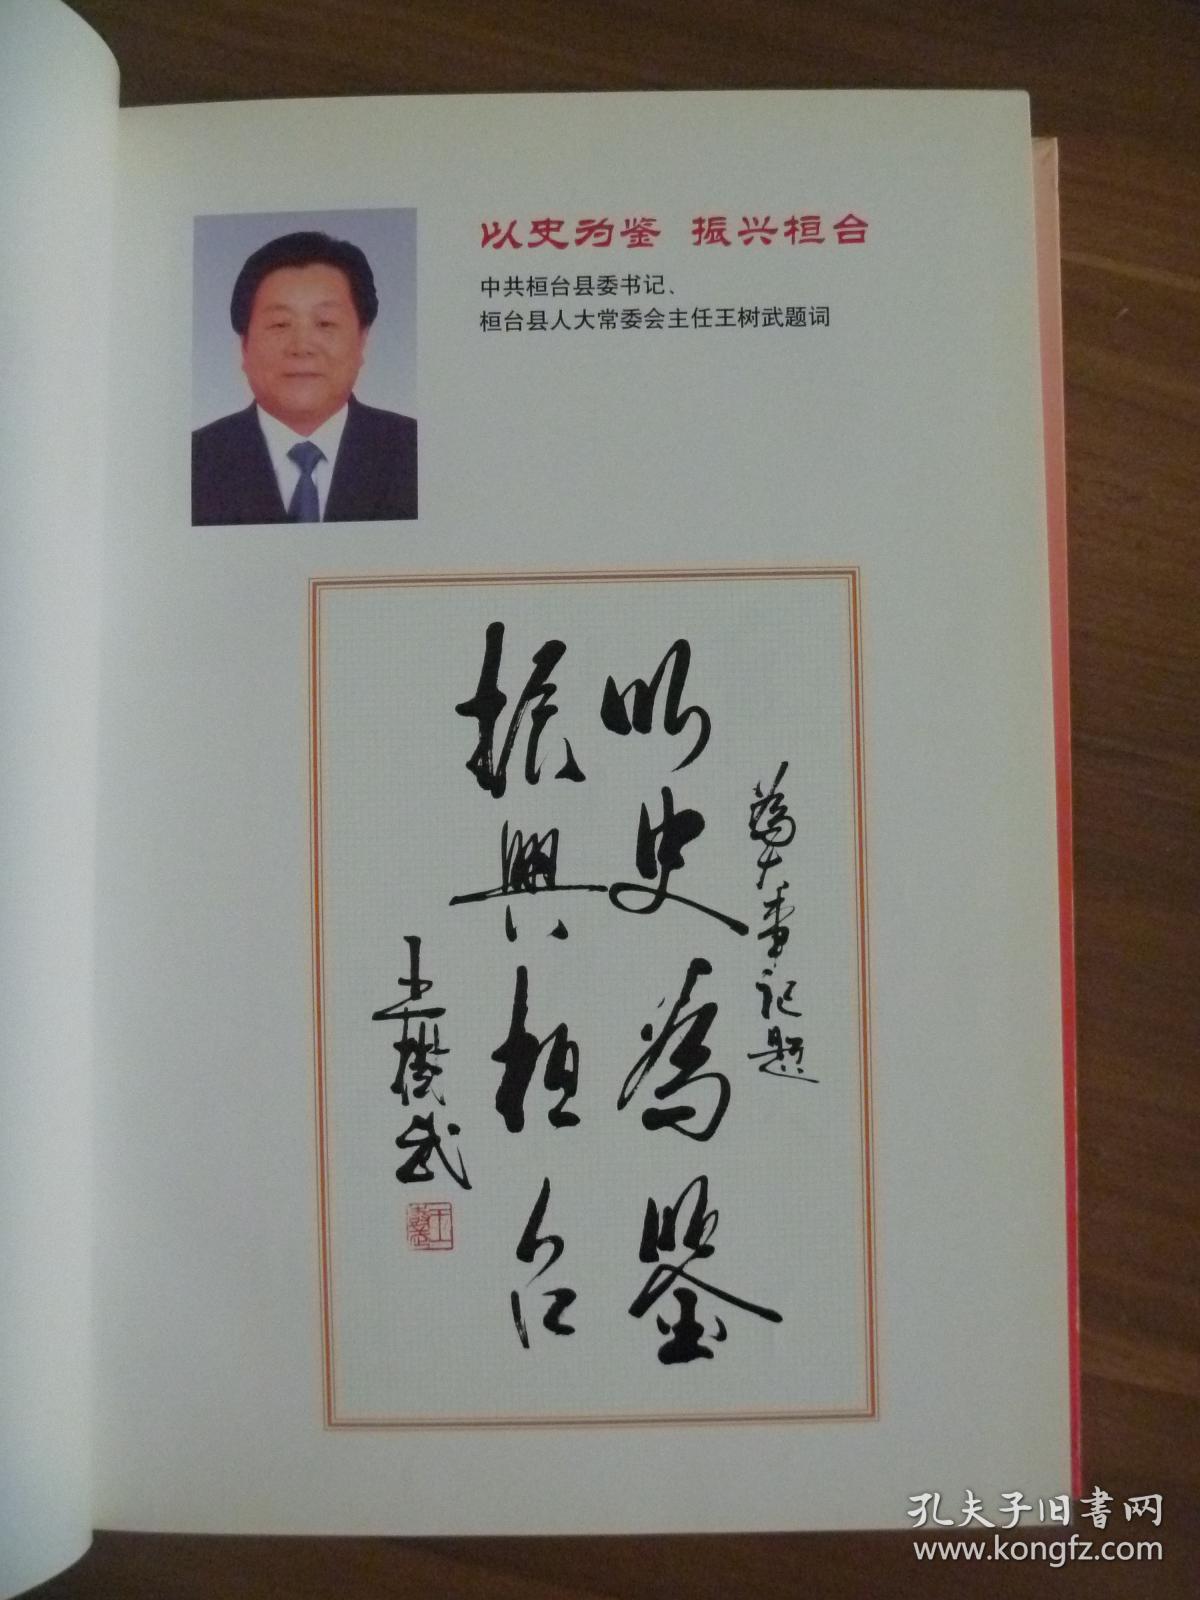 以史为鉴 振兴桓台
中共桓台县委书记、
桓台县人大常委会主任王树武题词
為大事记题
以史為鑒
振興桓台
王樹武
孔夫子旧書网
www.kongfz.com